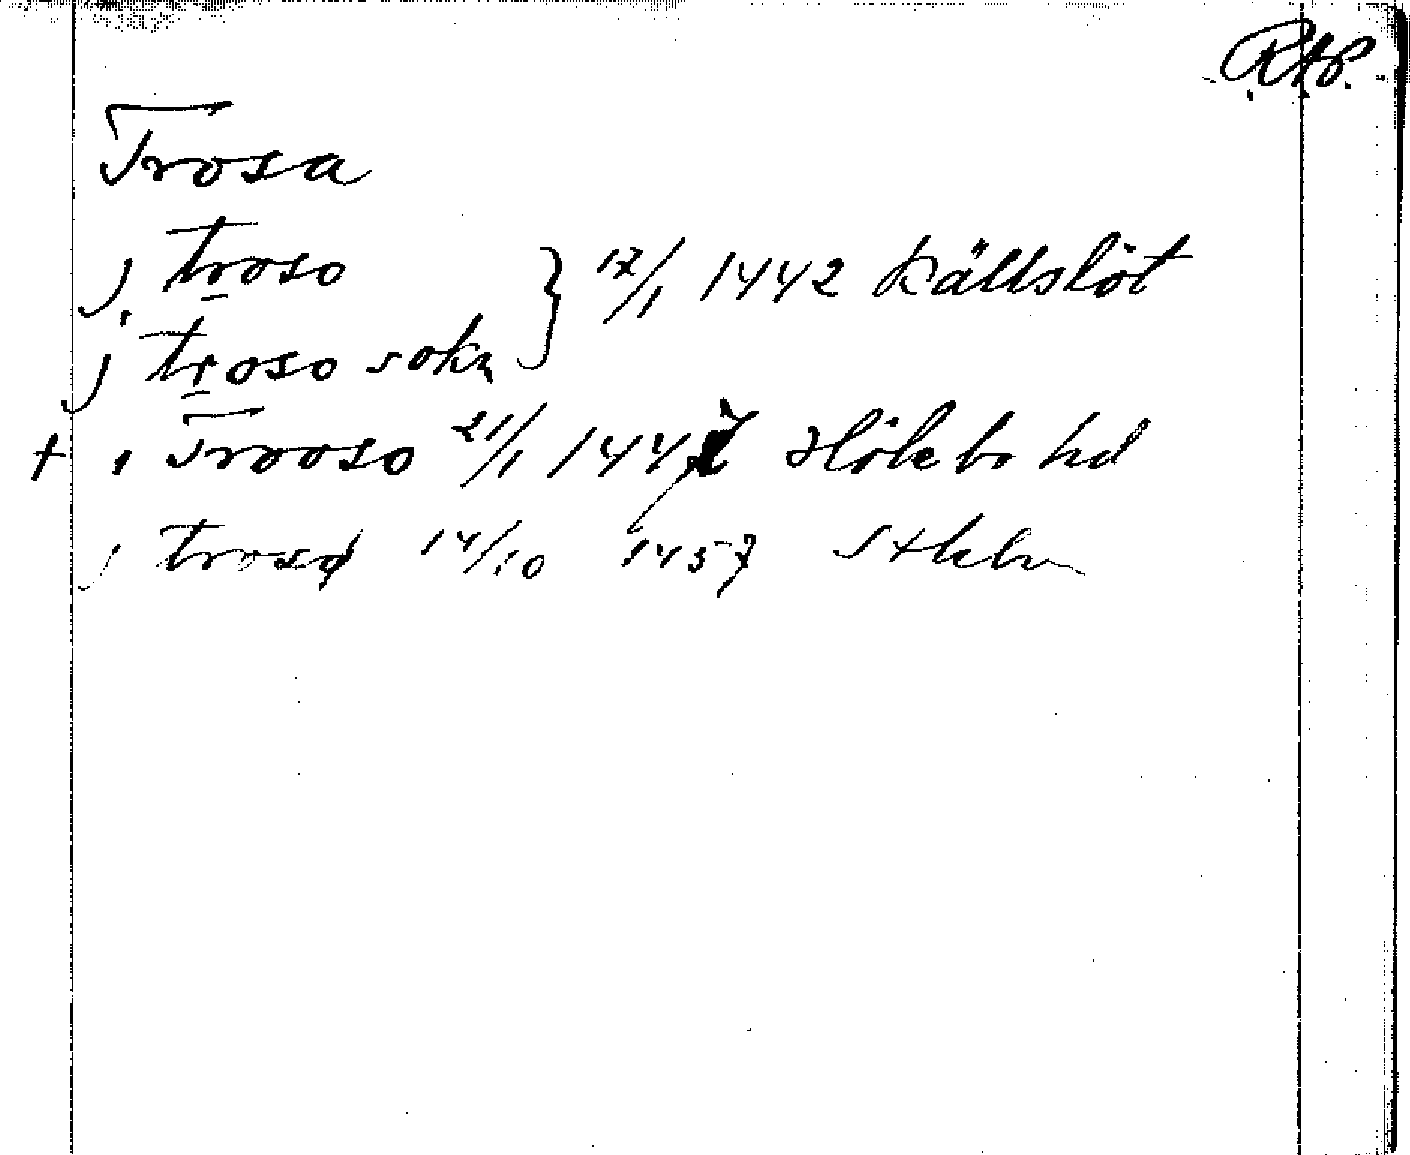 RAP.
Trosa
j troso } 17/1 1442 Källslöt
j troso sokn
+ i Trooso 21/1 1447 Hölebo hd
j trosø 14/10 1457 Sthlm